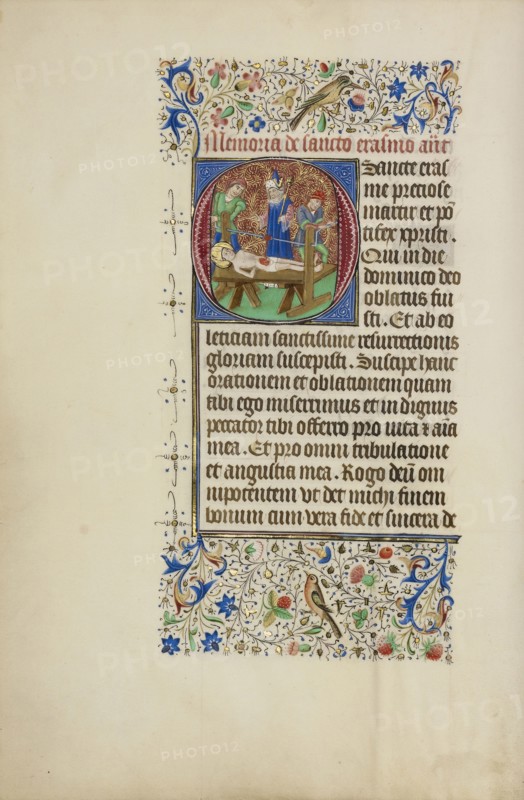 Memoria de sancto erasmo ant
O Sancte eras
me preciose
martir et po
tifex xpristi.
Qui in die
dominico deo
oblatus fui
sti. Et ab eo
leticiam sanctissime resurrectionis
gloriam suscepisti. Suscipe hanc
orationem et oblationem quam
tibi ego miserrimus et in dignus
peccator tibi offerro pro vita & aīa
mea. Et pro omni tribulatione
et angustia mea. Rogo deū om
nipotentem vt det michi finem
bonum cum vera fide et sincera de